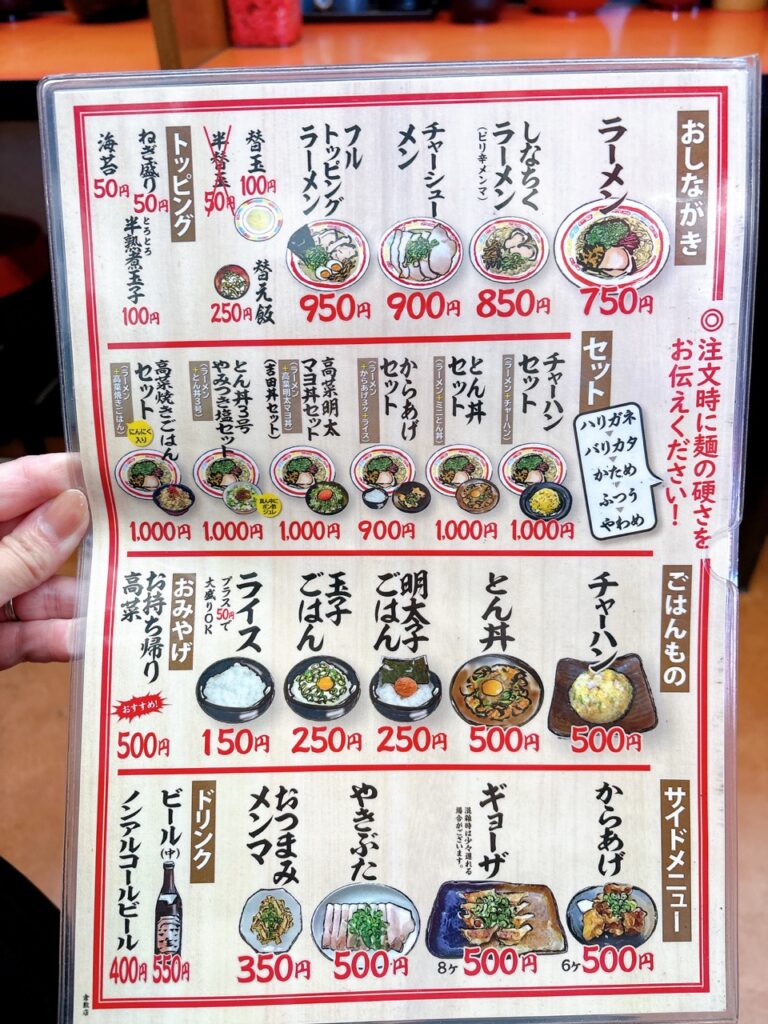 おしながき
ラーメン
750円
しなちく
ラーメン
(ピリ辛メンマ)
850円
チャーシュー
メン
900円
フル
トッピング
ラーメン
950円
替玉
100円
半替玉
50円
替え飯
250円
トッピング
ねぎご盛り
50円
海苔
50円
とろとろ
半熟煮玉子
100円
◎注文時に麺の硬さを
お伝えください!
ハリガネ
バリカタ
かため
ふつう
やわめ
セット
チャーハン
セット
(ラーメン+チャーハン)
1.000円
とん丼
セット
(ラーメン+ミニとん丼)
1.000円
からあげ
セット
(ラーメン+からあげ3ヶ+ライス)
900円
高菜明太
マヨ丼セット
(吉田丼セット)
(ラーメン+高菜明太マヨ丼)
1.000円
とん丼3号
やみつき塩セット
(ラーメン+とん丼3号)
真ん中に
ポン酢
ジュレ
1.000円
高菜焼きごはん
セット
(ラーメン+高菜焼きごはん)
にんにく
入り
1.000円
ごはんもの
チャーハン
500円
とん丼
500円
明太子
ごはん
250円
玉子
ごはん
250円
ライス
プラス50円で
大盛りOK
150円
おみやげ
お持ち帰り
高菜
おすすめ!
500円
サイドメニュー
からあげ
6ヶ500円
ギョーザ
混雑時は少々遅れる
場合がございます。
8ヶ500円
やきぶた
500円
おつまみ
メンマ
350円
ドリンク
ビール(中)
550円
ノンアルコールビール
400円
倉敷店